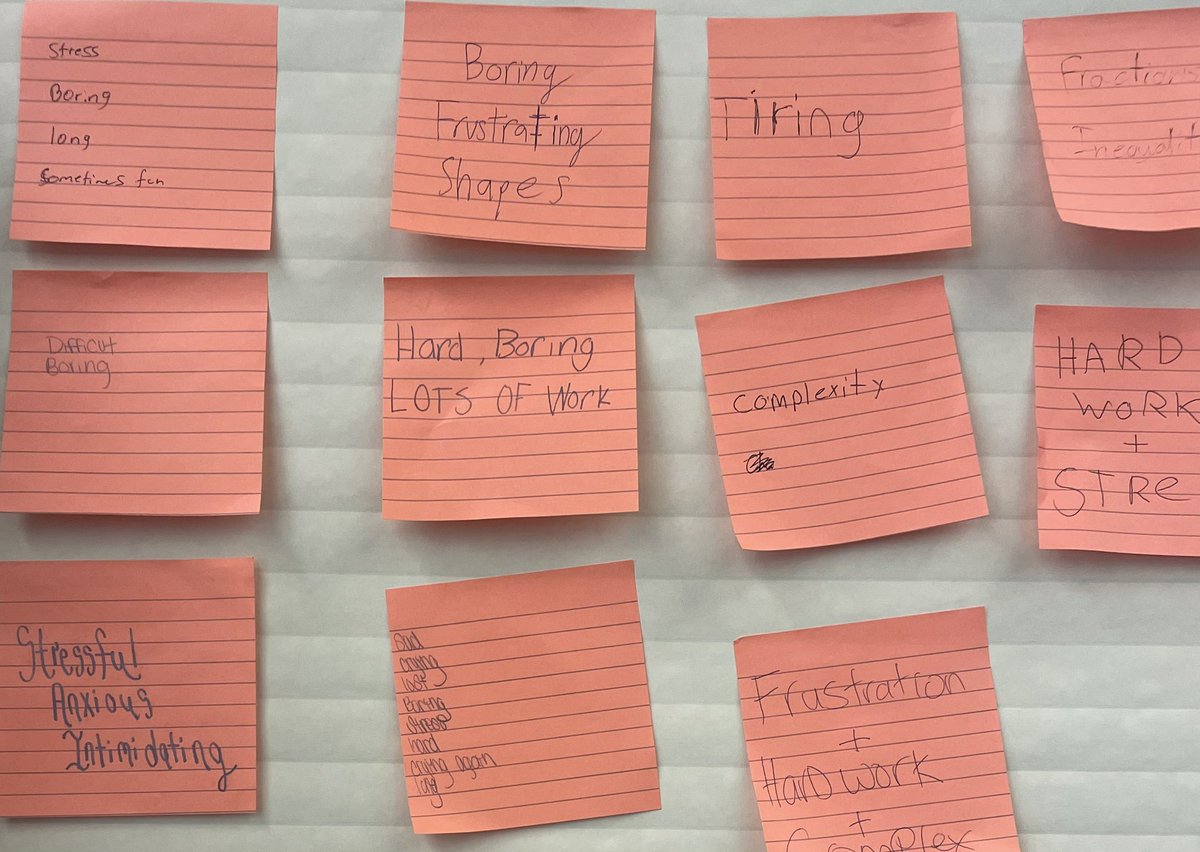 Stress
Boring
long
Sometimes fun
Boring
Frustrating
Shapes
Tiring
Fraction
Inequalit
Difficut
Boring
Hard, Boring
LOTS OF Work
Complexity
HARD
WORK
+
STRE
Stressful
Anxious
Intimidating
Sad
crying
lost
Boring
stress
hard
crying again
long
Frustration
+
Hard work
+
Complex